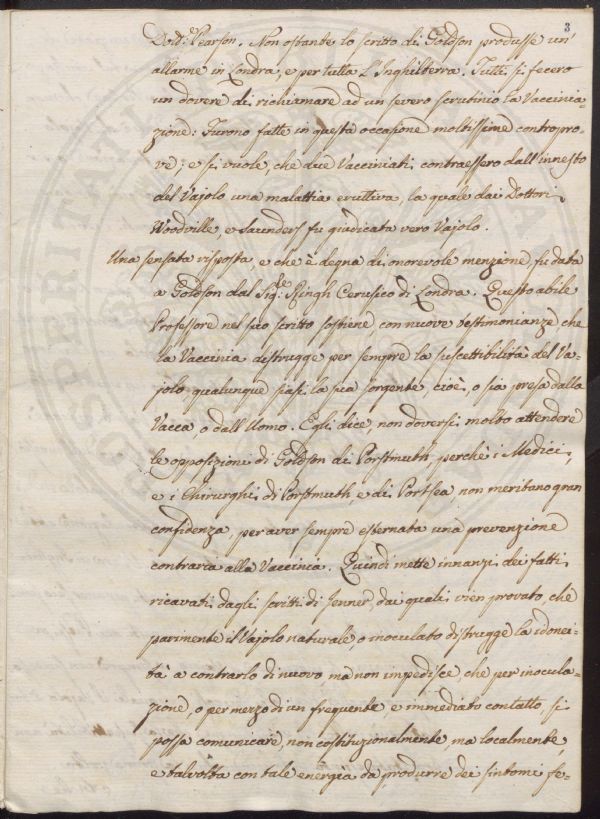 3
De d.r Pearson. Non ostante lo scritto di Goldson produsse un'
allarme in Londra, e per tutto L'Inghilterra. Tutti si fecero
un dovere di richiamare ad un severo scrutinio la Vaccinia-
zione: Furono fatte in questa occasione moltissime contropro-
ve, e si vuole, che due Vacciniati contraessero dall'innesto
del Vajolo una malattia eruttiva, la quale dai Dottori
Woodville e Saunders fu giudicata vero Vajolo.
Una sensata risposta, e che è degna di onorevole menzione, fu data
a Goldson dal Sig.re Ringh Cerusico di Londra. Questo abile
Professore nel suo scritto sostiene con nuove testimonianze che
la Vaccinia distrugge per sempre la suscettibilità del Va-
jolo qualunque siasi la sua sorgente, cioè, o sia presa dalla
Vacca, o dall'Uomo. Egli dice, non doversi molto attendere
le opposizioni di Goldson di Porstmuth, perchè i Medici,
e i Chirurghi di Porstmuth, e di Portsea non meritano gran
confidenza, per aver sempre esternata una prevenzione
contraria alla Vaccina. Quindi mette innanzi dei fatti
ricavati dagli scritti di Jenner, dai quali vien provato, che
parimente il Vajolo naturale, o inoculato distrugge la idonei-
tà a contrarlo di nuovo ma non impedisce, che per inocula-
zione, o per mezzo di un frequente, e immediato contatto, si
possa comunicare, non costituzionalmente, ma localmente,
e talvolta con tale energia da produrre dei sintomi fe-